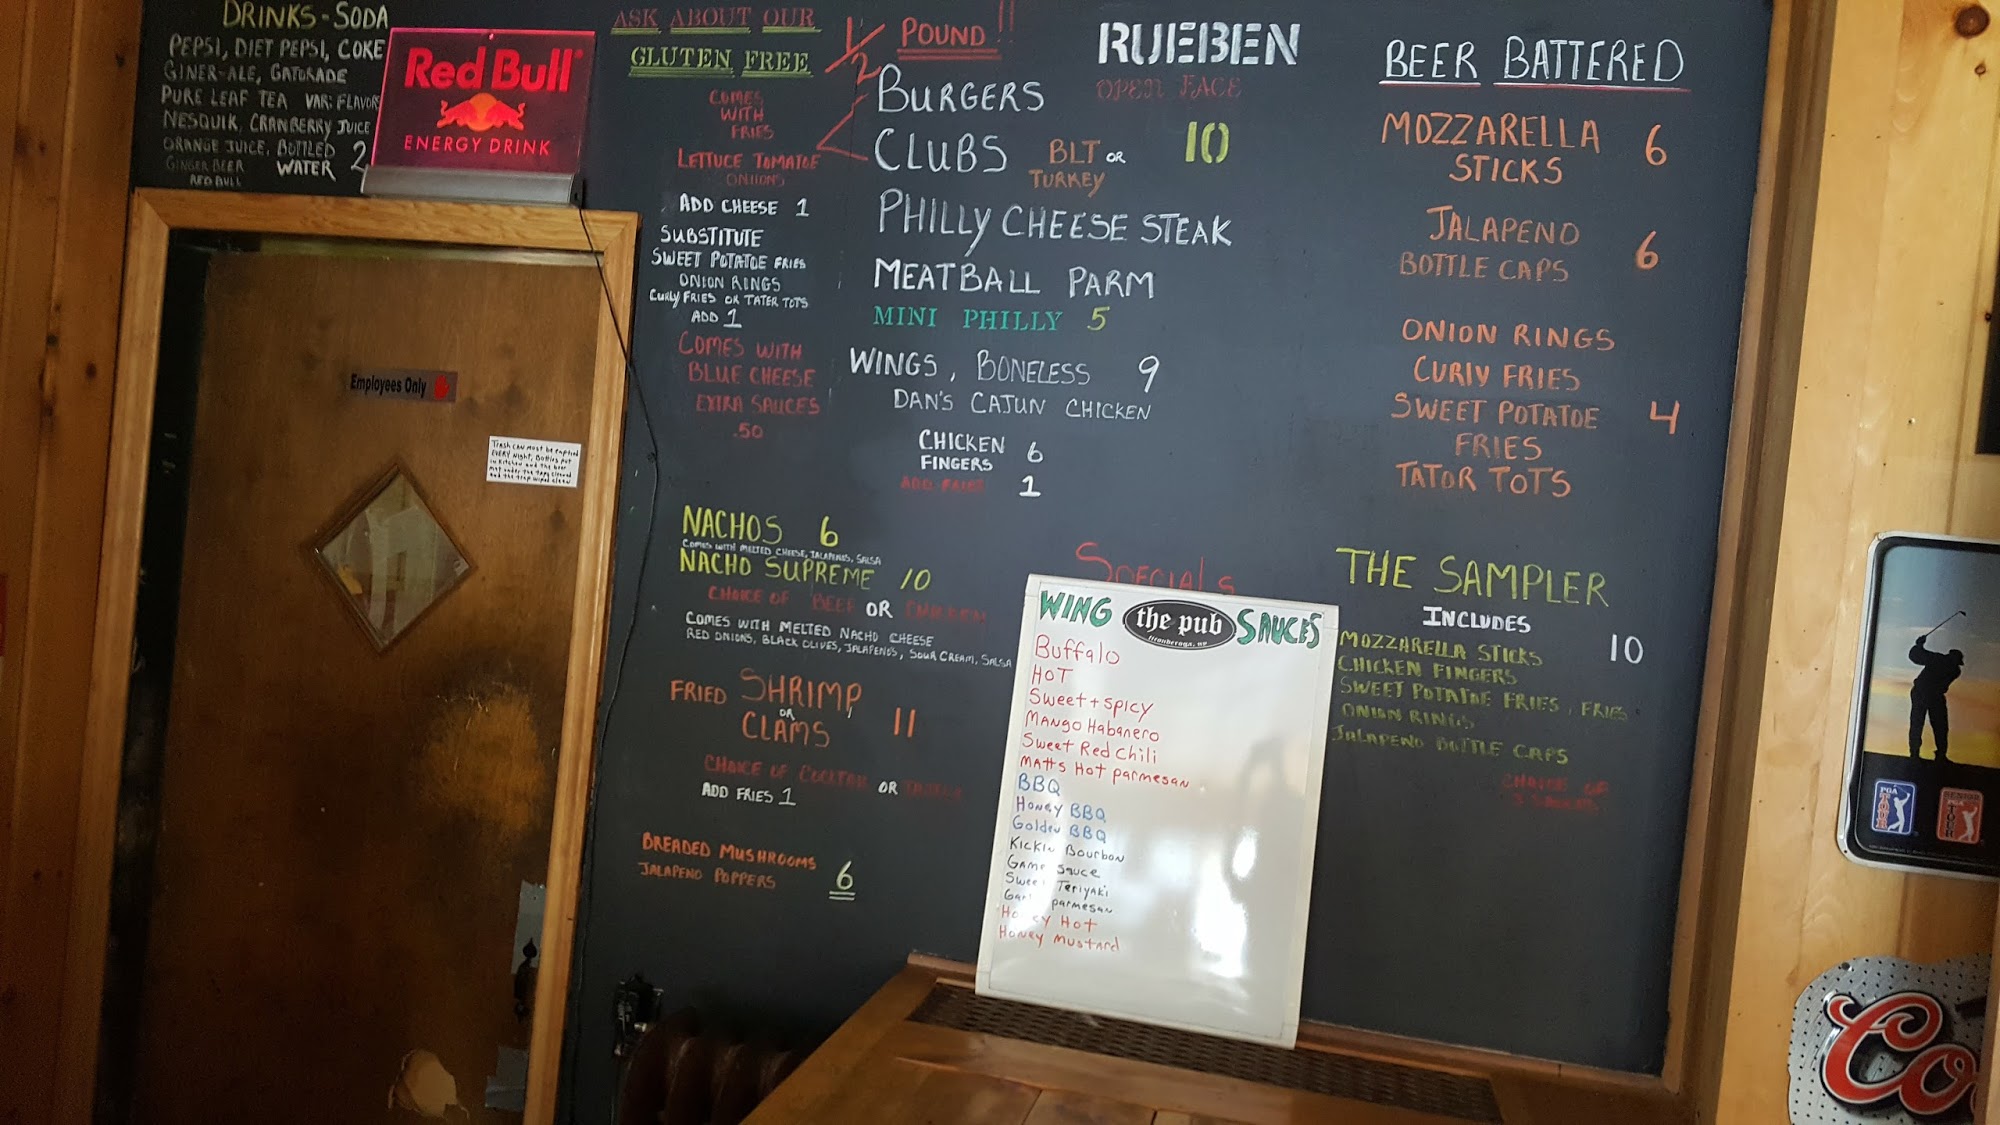 DRINKS - SODA
PEPSI, DIET PEPSI, COKE
GINER-ALE, GATORADE
PURE LEAF TEA VAR: FLAVOR
NESQUIK, CRANBERRY JUICE
ORANGE JUICE, BOTTLED
WATER 2
GINGER BEER
RED BULL
Red Bull
ENERGY DRINK
Employees Only
Trash can must be emptied
EVERY Night, Bottles put
in kitchen and the beer
mat under the taps cleaned
and the trap wiped clean
ASK ABOUT OUR
GLUTEN FREE
COMES
WITH
FRIES
LETTUCE TOMATOE
ONIONS
ADD CHEESE 1
SUBSTITUTE
SWEET POTATOE FRIES
ONION RINGS
CURLY FRIES OR TATER TOTS
ADD 1
COMES WITH
BLUE CHEESE
EXTRA SAUCES
.50
1/2 POUND!!
BURGERS
CLUBS BLT OR
TURKEY
10
PHILLY CHEESE STEAK
MEATBALL PARM
MINI PHILLY 5
WINGS, BONELESS 9
DAN'S CAJUN CHICKEN
CHICKEN
FINGERS 6
ADD FRIES 1
RUEBEN
OPEN FACE
NACHOS 6
COMES WITH MELTED CHEESE, JALAPENOS, SALSA
NACHO SUPREME 10
CHOICE OF BEEF OR CHICKEN
COMES WITH MELTED NACHO CHEESE
RED ONIONS, BLACK OLIVES, JALAPENO'S, SOUR CREAM, SALSA
FRIED SHRIMP
OR
CLAMS 11
CHOICE OF COCKTAIL OR TARTER
ADD FRIES 1
BREADED MUSHROOMS
JALAPENO POPPERS 6
SPECIALS
WING the pub SAUCES
ticonderoga, ny
Buffalo
HOT
Sweet + Spicy
Mango Habanero
Sweet Red Chili
Matts Hot Parmesan
BBQ
Honey BBQ
Golden BBQ
Kickin Bourbon
Game Sauce
Sweet Teriyaki
Garlic parmesan
Honey Hot
Honey Mustard
BEER BATTERED
MOZZARELLA
STICKS 6
JALAPENO
BOTTLE CAPS 6
ONION RINGS
CURLY FRIES
SWEET POTATOE
FRIES 4
TATOR TOTS
THE SAMPLER
INCLUDES
MOZZARELLA STICKS 10
CHICKEN FINGERS
SWEET POTATOE FRIES, FRIES
ONION RINGS
JALAPENO BOTTLE CAPS
CHOICE OF
PGA
TOUR
SENIOR
TOUR
Co